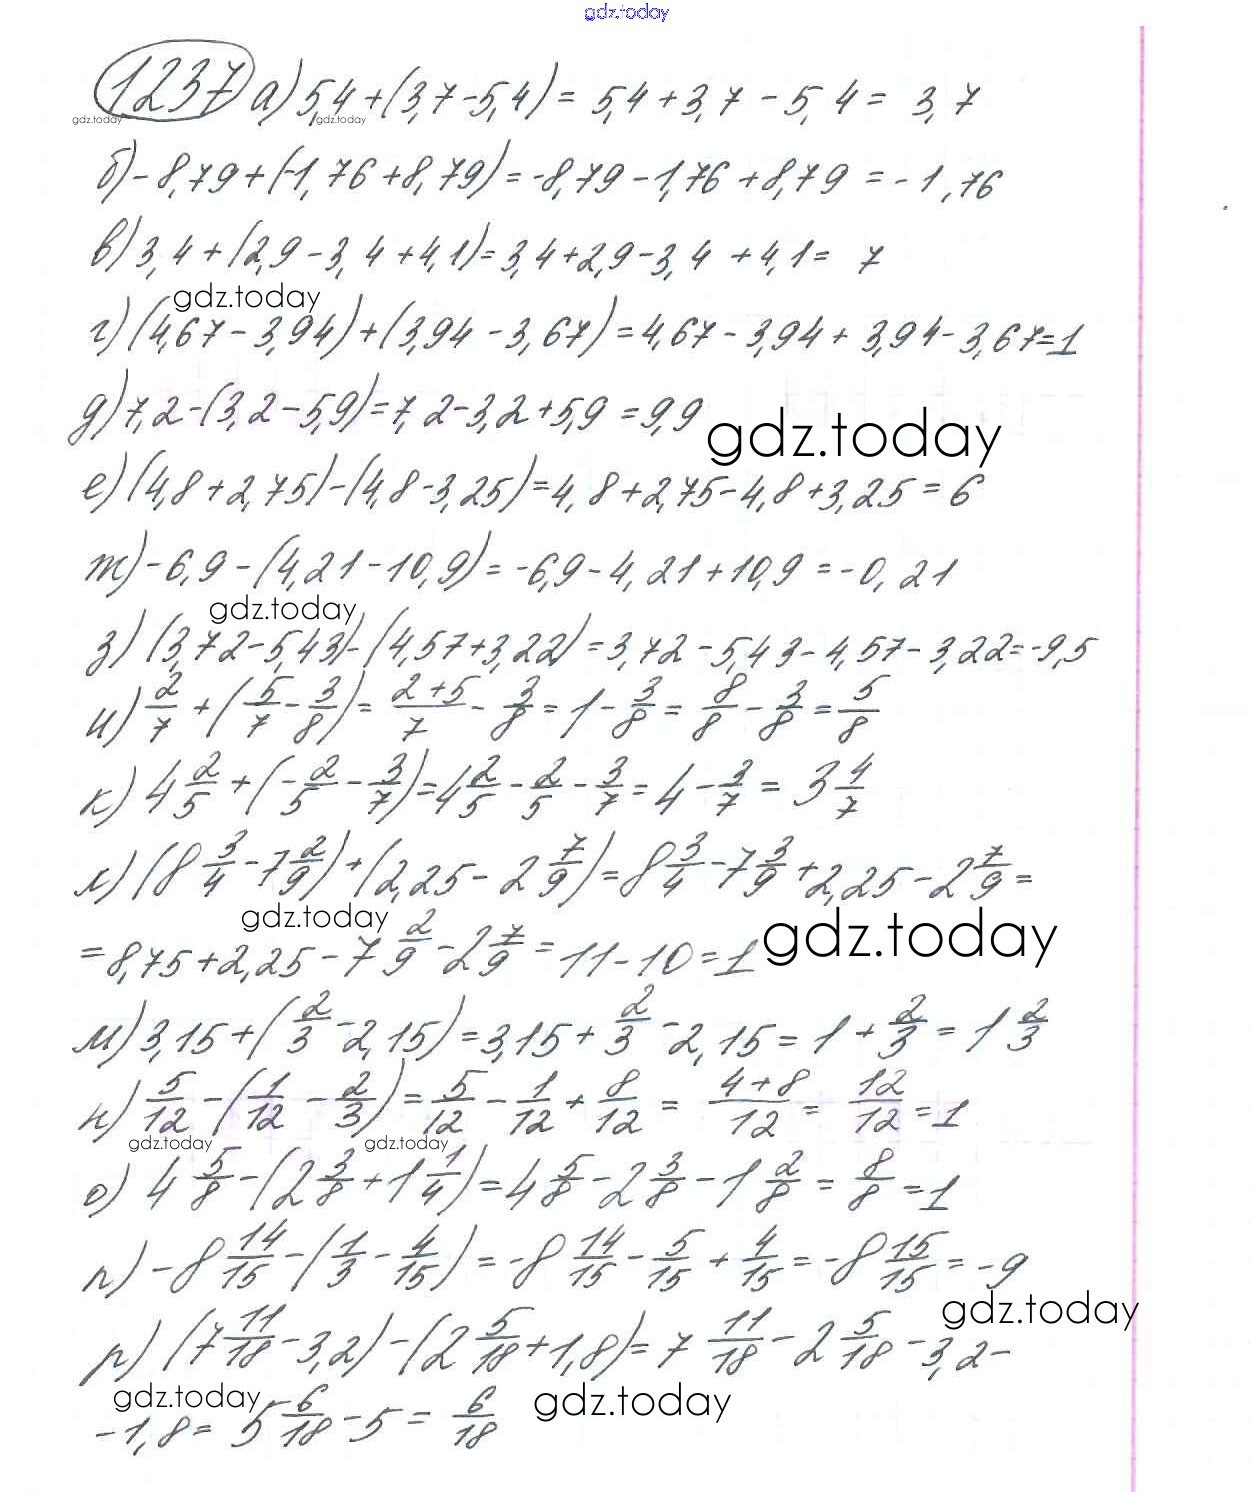 gdz.today
1237 а) 5,4+(3,7-5,4)= 5,4+3,7-5,4= 3,7
gdz.today gdz.today
б)-8,79+(-1,76+8,79)=-8,79-1,76+8,79=-1,76
в) 3,4+(2,9-3,4+4,1)=3,4+2,9-3,4+4,1= 7
gdz.today
г) (4,67-3,94)+(3,94-3,67)=4,67-3,94+3,94-3,67=1
д) 7,2-(3,2-5,9)=7,2-3,2+5,9=9,9
gdz.today
е) (4,8+2,75)-(4,8-3,25)=4,8+2,75-4,8+3,25=6
ж)-6,9-(4,21-10,9)=-6,9-4,21+10,9=-0,21
gdz.today
з) (3,72-5,43)-(4,57+3,22)=3,72-5,43-4,57-3,22=-9,5
и) 2/7+(5/7-3/8)= (2+5)/7-3/8=1-3/8=8/8-3/8=5/8
к) 4 2/5+(-2/5-3/7)=4 2/5-2/5-3/7=4-3/7=3 4/7
л) (8 3/4-7 2/9)+(2,25-2 7/9)=8 3/4-7 3/9+2,25-2 7/9=
gdz.today gdz.today
=8,75+2,25-7 2/9-2 7/9=11-10=1
м) 3,15+(2/3-2,15)=3,15+2/3-2,15=1+2/3=1 2/3
н) 5/12-(1/12-2/3)=5/12-1/12+8/12= (4+8)/12= 12/12=1
gdz.today gdz.today
о) 4 5/8-(2 3/8+1 1/4)=4 5/8-2 3/8-1 2/8=8/8=1
п) -8 14/15-(1/3-4/15)=-8 14/15-5/15+4/15=-8 15/15=-9
gdz.today
р) (7 11/18-3,2)-(2 5/18+1,8)=7 11/18-2 5/18-3,2-
gdz.today gdz.today
-1,8= 5 6/18-5= 6/18